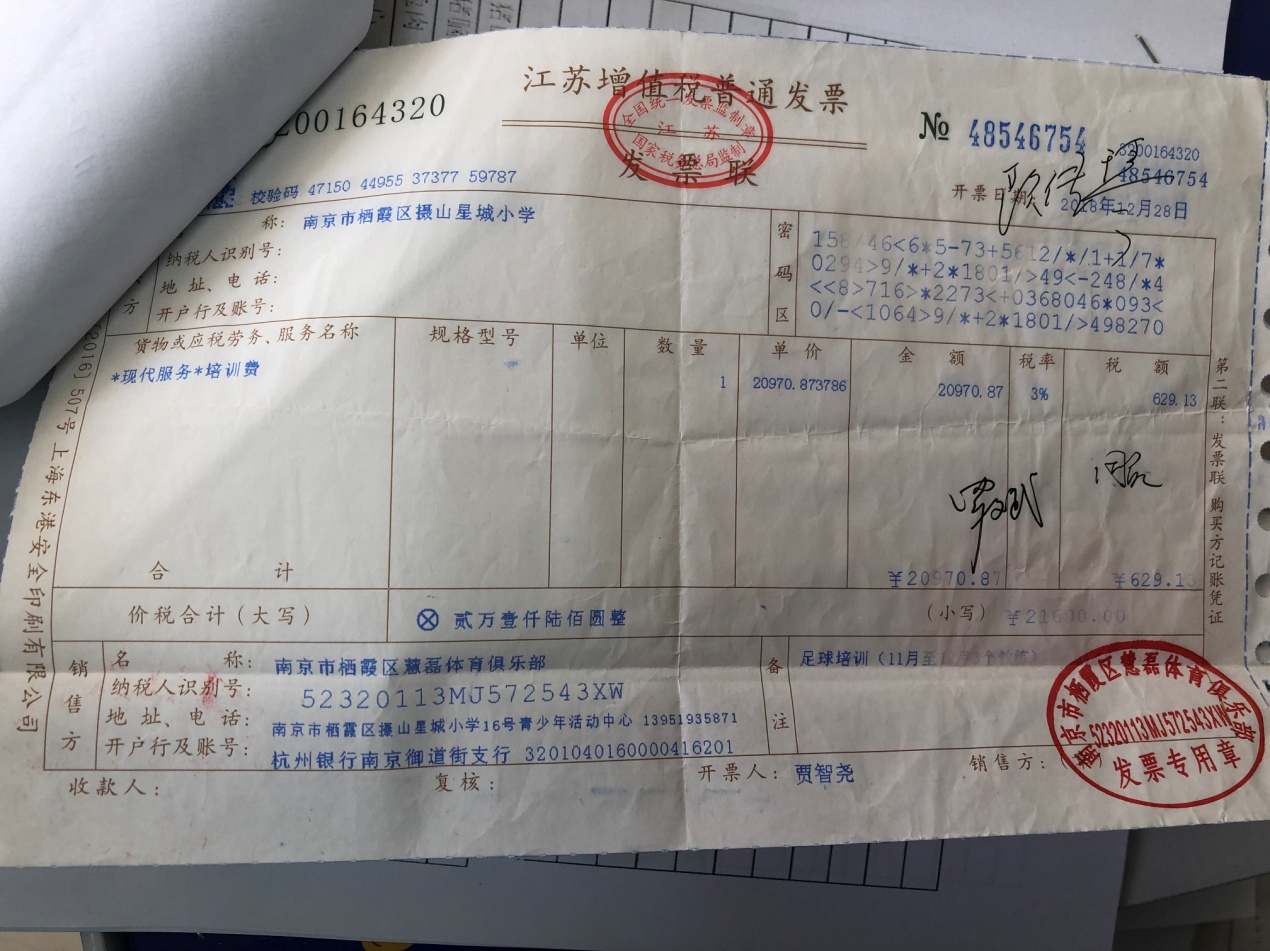 江苏增值税普通发票
发票联
全国统一发票监制章
江苏
国家税务总局监制
200164320
№ 48546754
3200164320
48546754
校验码 47150 44955 37377 59787
开票日期: 2018年12月28日
称: 南京市栖霞区摄山星城小学
纳税人识别号:
地址、电话:
开户行及账号:
方
密码区
158/46<6*5-73+5612/*/1+1/7*
0294>9/*+2*1801/>49<-248/*4
<<8>716>*2273<+0368046*093<
0/-<1064>9/*+2*1801/>498270
货物或应税劳务、服务名称 规格型号 单位 数量 单价 金额 税率 税额
*现代服务*培训费 1 20970.873786 20970.87 3% 629.13
合计 ¥20970.87 ¥629.13
价税合计(大写) ⊗ 贰万壹仟陆佰圆整 (小写) ¥21600.00
销售方
名称: 南京市栖霞区慧磊体育俱乐部
纳税人识别号: 52320113MJ572543XW
地址、电话: 南京市栖霞区摄山星城小学16号青少年活动中心 13951935871
开户行及账号: 杭州银行南京御道街支行 3201040160000416201
备注
足球培训(11月至
收款人: 复核: 开票人: 贾智尧 销售方:(
南京市栖霞区慧磊体育俱乐部
52320113MJ572543XW
发票专用章
第二联:发票联 购买方记账凭证
2016]507号上海东港安全印刷有限公司